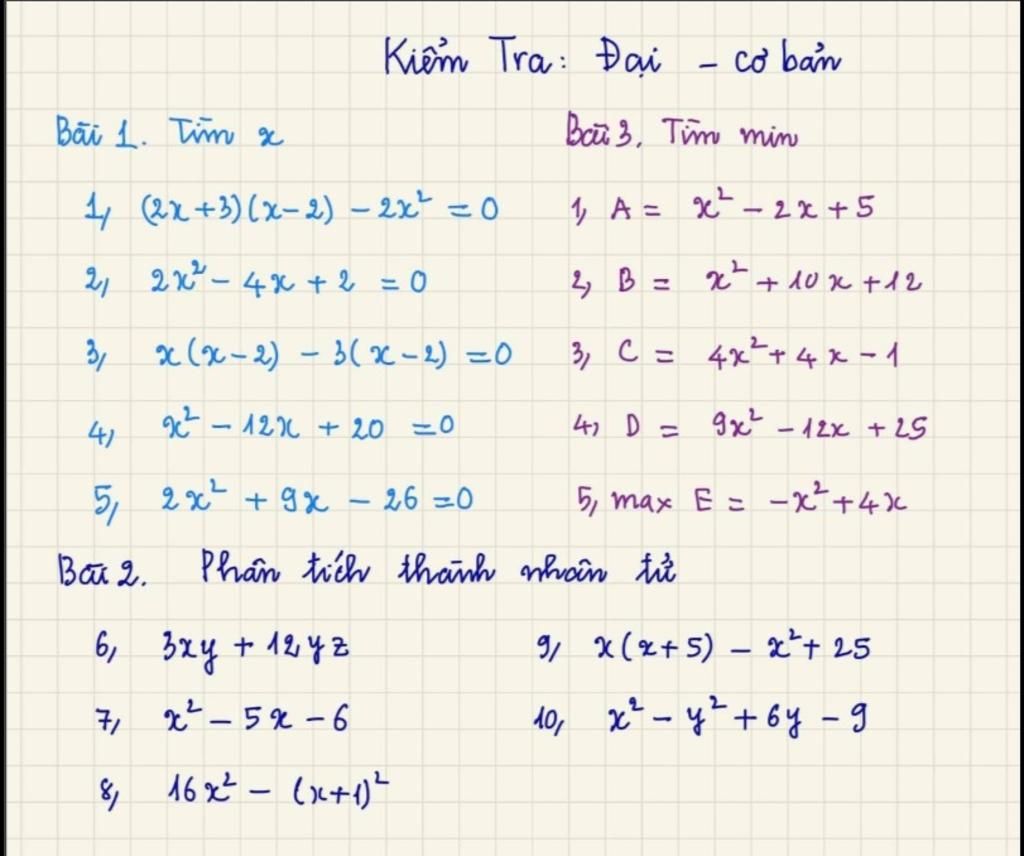 Kiểm Tra: Đại - cơ bản
Bài 1. Tìm x
1, (2x+3)(x-2) - 2x² = 0
2, 2x² - 4x + 2 = 0
3, x(x-2) - 3(x-2) = 0
4, x² - 12x + 20 = 0
5, 2x² + 9x - 26 = 0
Bài 3. Tìm min
1, A = x² - 2x + 5
2, B = x² + 10x + 12
3, C = 4x² + 4x - 1
4, D = 9x² - 12x + 25
5, max E = -x² + 4x
Bài 2. Phân tích thành nhân tử
6, 3xy + 12yz
7, x² - 5x - 6
8, 16x² - (x+1)²
9, x(x+5) - x² + 25
10, x² - y² + 6y - 9